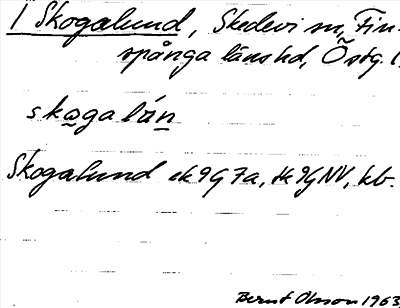 1 Skogalund, Skedevi sn, Fin-
spånga länshd, Östg. l.
skogalún
Skogalund ek 9G 7a, tk 9G NV, kb.
Bernt Olsson 1963